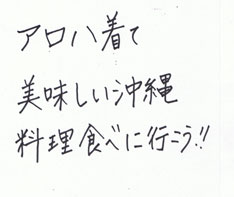 アロハ着て
美味しい沖縄
料理食べに行こう!!